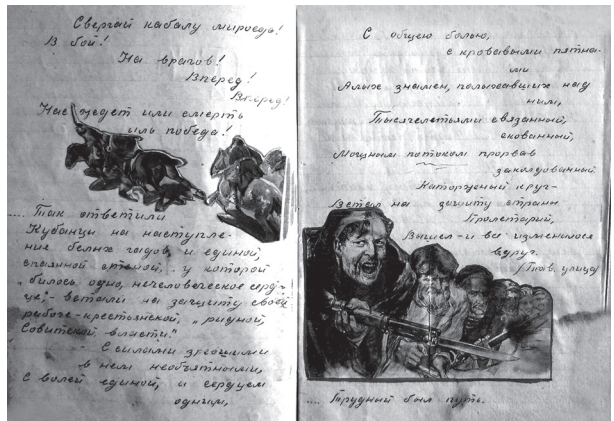 Свергай кабалу мироеда!
В бой!
На врагов!
Вперед!
Вперед!
Нас ждет или смерть
иль победа!
.... Так ответили
Кубанцы на наступле-
ние белых гадов, и единой,
спаянной стеной.. у которой
"билось одно, нечеловеческое серд-
це",- встали на защиту своей
рабоче-крестьянской, "ридной,
Совитской власти."
- С силами зревшими
в нем необъятными,
С волей единой, и сердцем
одним,
С общею болью,
с кровавыми пятна-
ми
Алых знамен, полыхавших над
ним,
Тысячелетьями связанный,
скованный,
Мощным потоком прорвав
заколдованный
Каторжный круг-
Встал на защиту страны
Пролетарий,
Вышел - и все изменилося
вдруг.
/Тов. улица/
.... Трудный был путь.